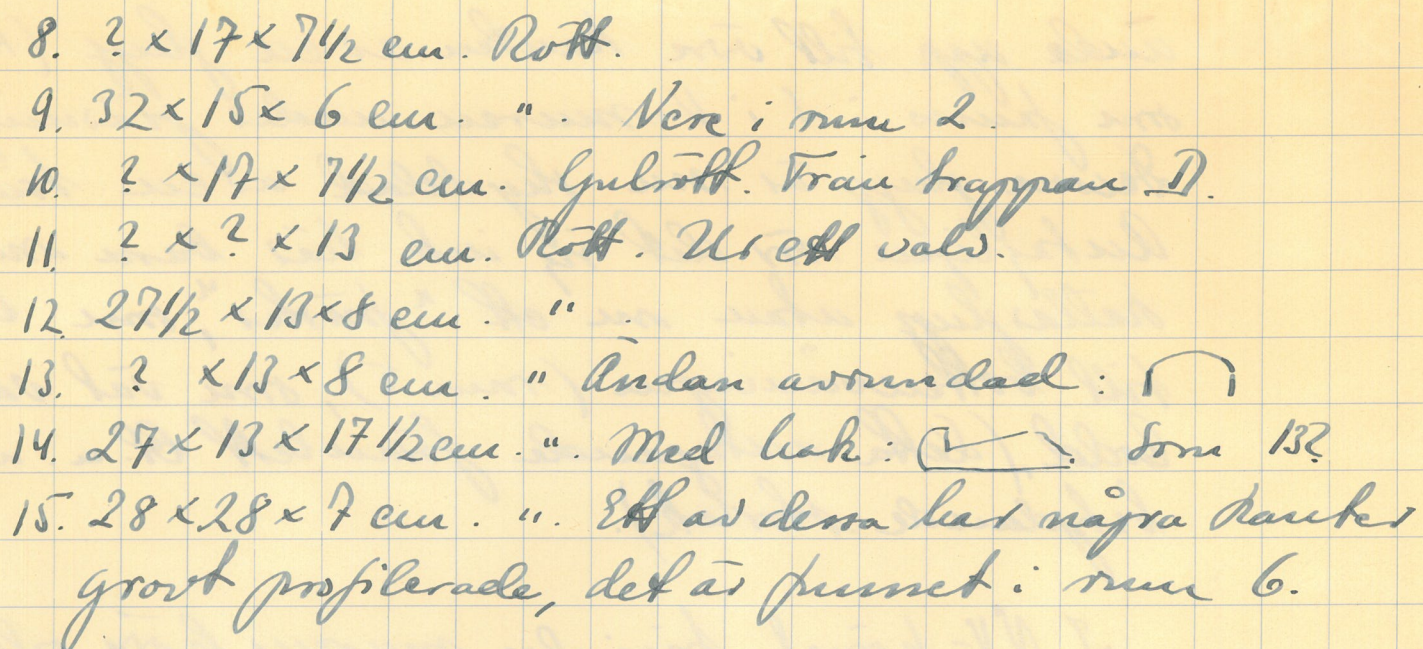 8. ? × 17 × 7 1/2 cm. Rött.
9. 32 × 15 × 6 cm. ". Nere i rum 2.
10. ? × 17 × 7 1/2 cm. Gulrött. Från trappan D.
11. ? × ? × 13 cm. Rött. Ur ett valv.
12. 27 1/2 × 13 × 8 cm. ".
13. ? × 13 × 8 cm. " Ändan avrundad:
14. 27 × 13 × 17 1/2 cm. ". Med hak: . Som 13?
15. 28 × 28 × 7 cm. ". Ett av dessa har några kanter
grovt profilerade, det är funnet i rum 6.